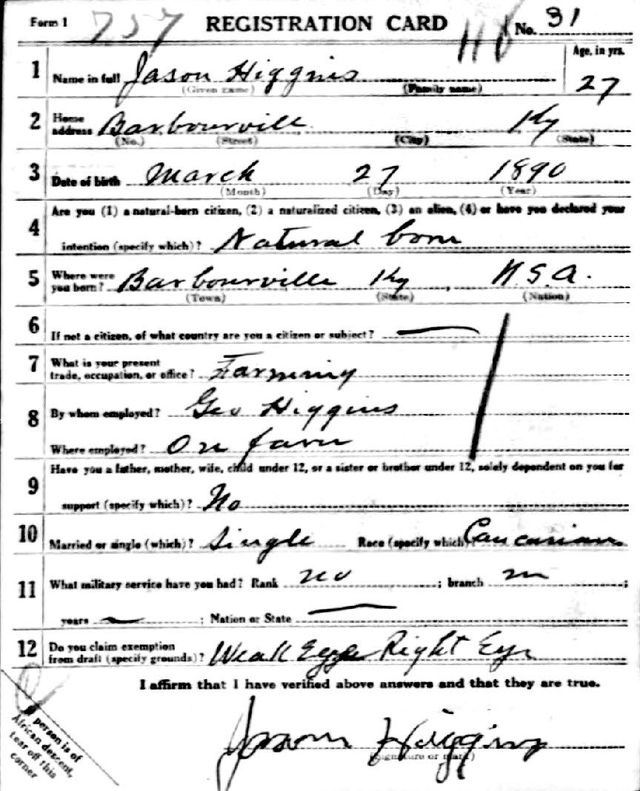 Form 1 757 REGISTRATION CARD 118 No. 31
1 Name in full Jason Higgins Age, in yrs. 27
(Given name) (Family name)
2 Home address Barbourville Ky
(No.) (Street) (City) (State)
3 Date of birth March 27 1890
(Month) (Day) (Year)
4 Are you (1) a natural-born citizen, (2) a naturalized citizen, (3) an alien, (4) or have you declared your
intention (specify which)? Natural born
5 Where were you born? Barbourville Ky, U.S.A.
(Town) (State) (Nation)
6 If not a citizen, of what country are you a citizen or subject? —
7 What is your present trade, occupation, or office? Farming
8 By whom employed? Geo Higgins
Where employed? On farm
9 Have you a father, mother, wife, child under 12, or a sister or brother under 12, solely dependent on you for
support (specify which)? No
10 Married or single (which)? Single Race (specify which)? Caucasian
11 What military service have you had? Rank no ; branch ;
years — ; Nation or State —
12 Do you claim exemption from draft (specify grounds)? Weak Right Eye
I affirm that I have verified above answers and that they are true.
Jason Higgins
(Signature or mark)
person is of
African descent,
tear off this
corner